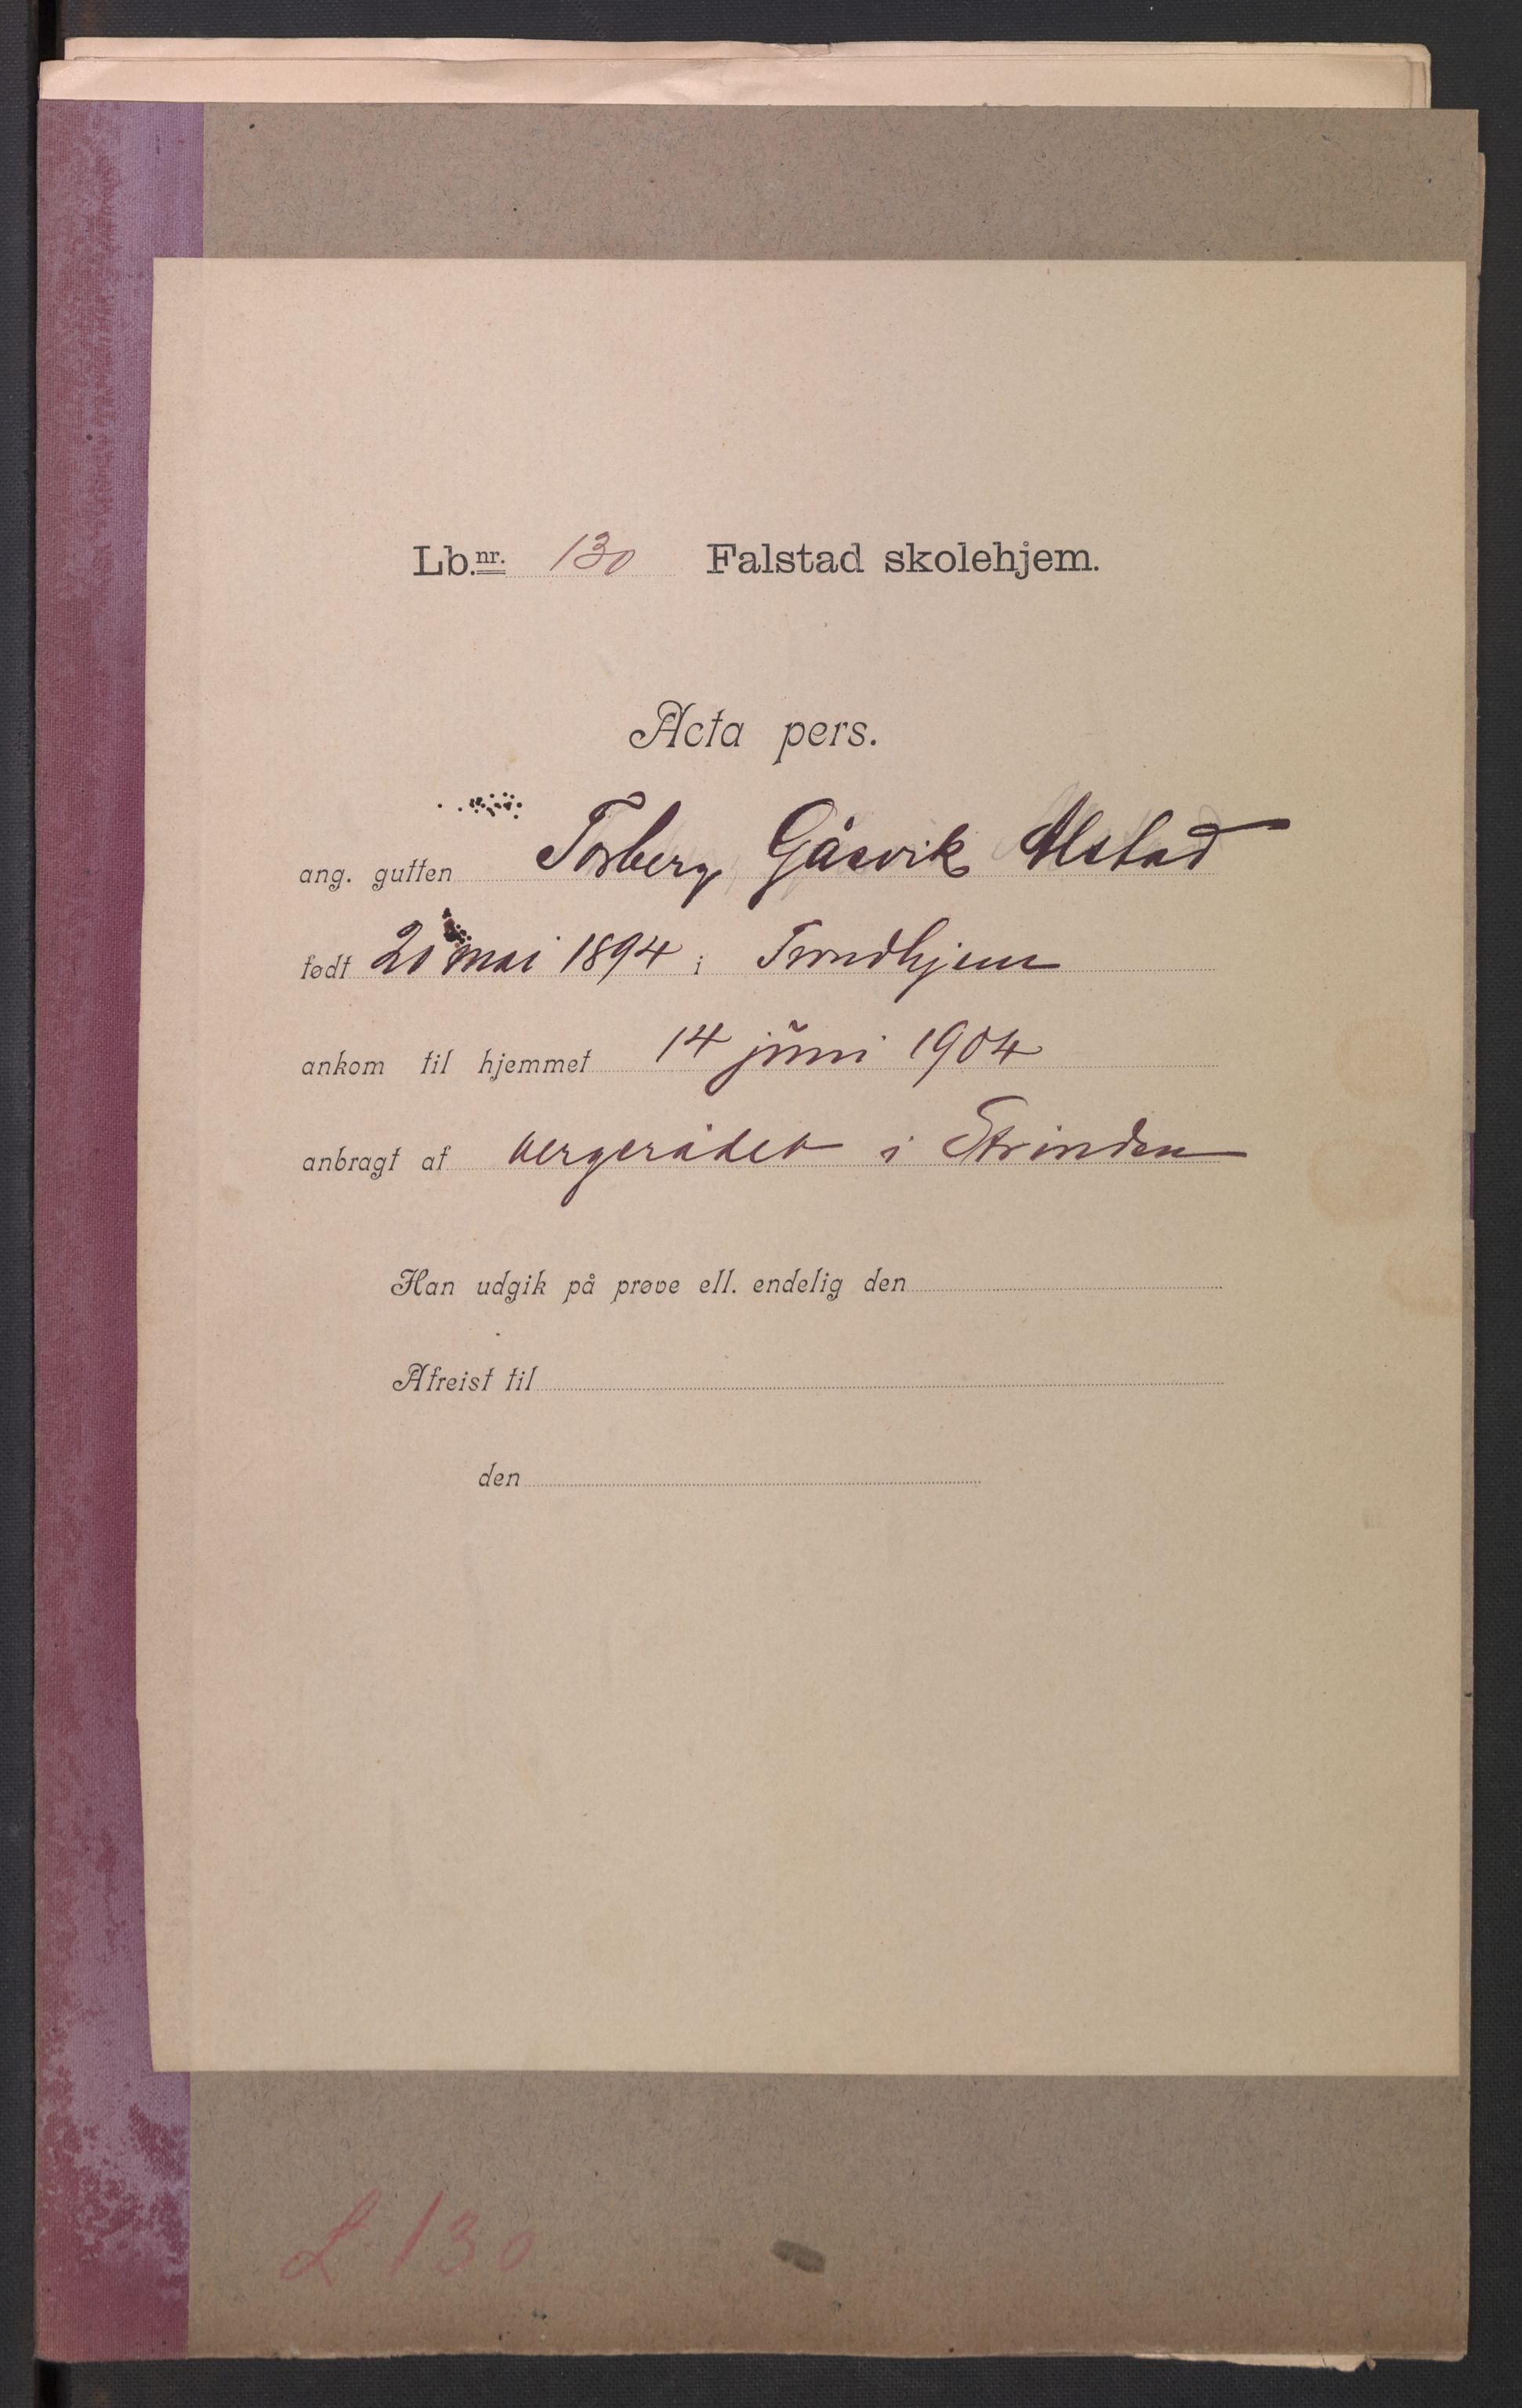 Lb.nr. 130 Falstad skolehjem.
Acta pers.
ang. gutten Torberg Gåsvik Alstad
født 20 mai 1894 i Trondhjem
ankom til hjemmet 14 juni 1904
anbragt af vergerådet i Strinden
Han udgik på prøve ell. endelig den
Afreist til
den
L 130